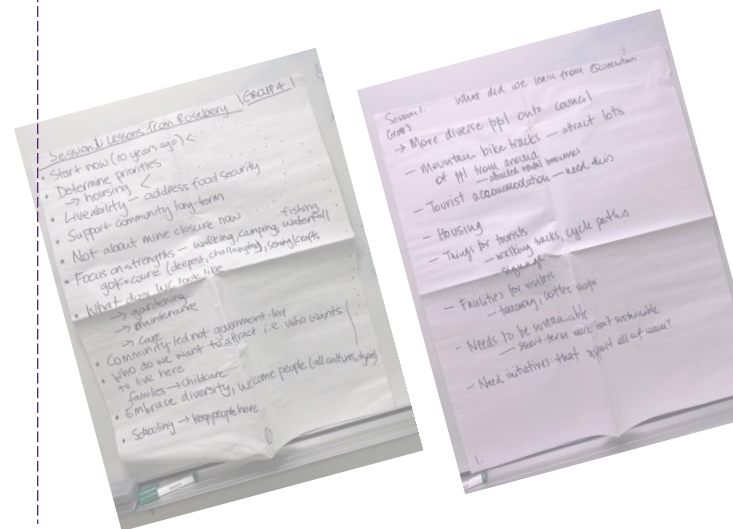 Session 1: Lessons from Rosebery
GROUP 4
• Start now (10 years ago) <
• Determine priorities
→ housing <
• Liveability – address food security
• Support community long-term
• Not about mine closure now
• Focus on strengths – walking, camping, waterfall
fishing
golf course (deepest, challenging), sewing/crafts
• What does look like
→ gardening
→ maintenance
→ cafe
• Community-led not government-led
• Who do we want to attract i.e. who wants
to live here
families → childcare
• Embrace diversity, welcome people (all cultures, types)
• Schooling → keep people here
Session 1.
What did we learn from
Group
→ More diverse ppl onto council
– Mountain bike tracks – attract lots
of ppl from around
– attracted businesses
– Tourist accommodation – need this
– Housing
– Things for tourists
– walking tracks, cycle paths
signage
– Facilities for visitors
– takeaway, coffee shops
– Needs to be sustainable
– short term work isn't sustainable
– Need initiatives that support all of
1.